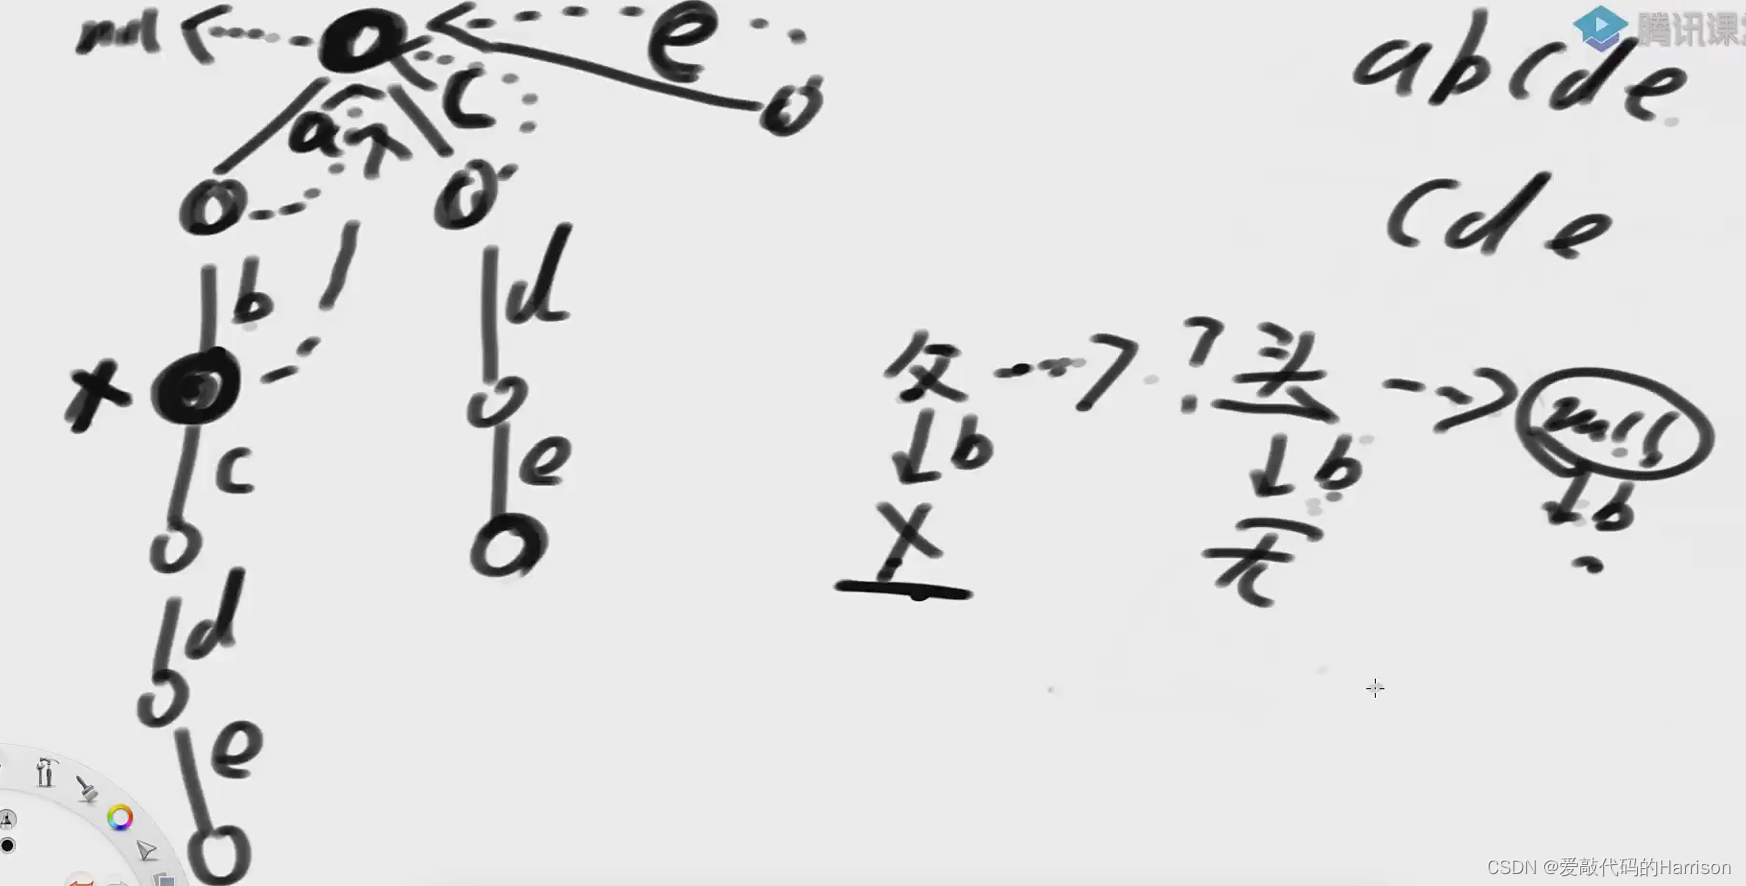 null
e
abcde
腾讯课堂
a
c
cde
b
d
父 ? 头 null
b b b
X 无
X
c
e
d
e
CSDN @爱敲代码的Harrison